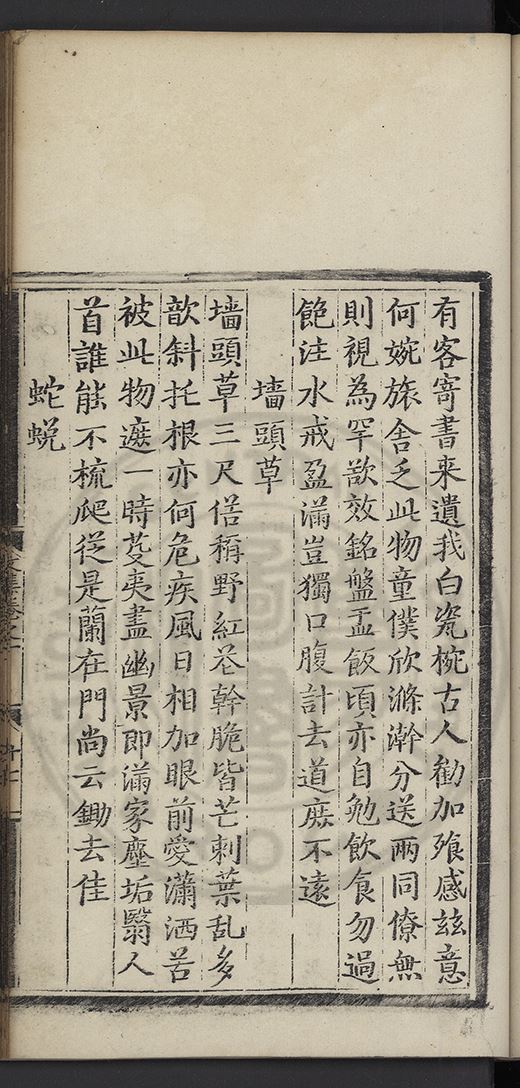 有客寄書来遺我白瓷椀古人勸加飱感兹意
何婉旅舎乏此物童僕欣滌澣分送兩同僚無
則視為罕歆效銘盤盂飯頃亦自勉飲食勿過
飽注水戒盈滿豈獨口腹計去道庶不遠
墻頭草
墻頭草三尺偣稱野紅花幹脆皆芒刺葉乱多
欹斜托根亦何危疾風日相加眼前愛瀟洒苦
被此物遮一時芟夷盡幽景即滿家塵垢翳人
首誰能不梳爬從是蘭在門尚云鋤去佳
蛇蜕